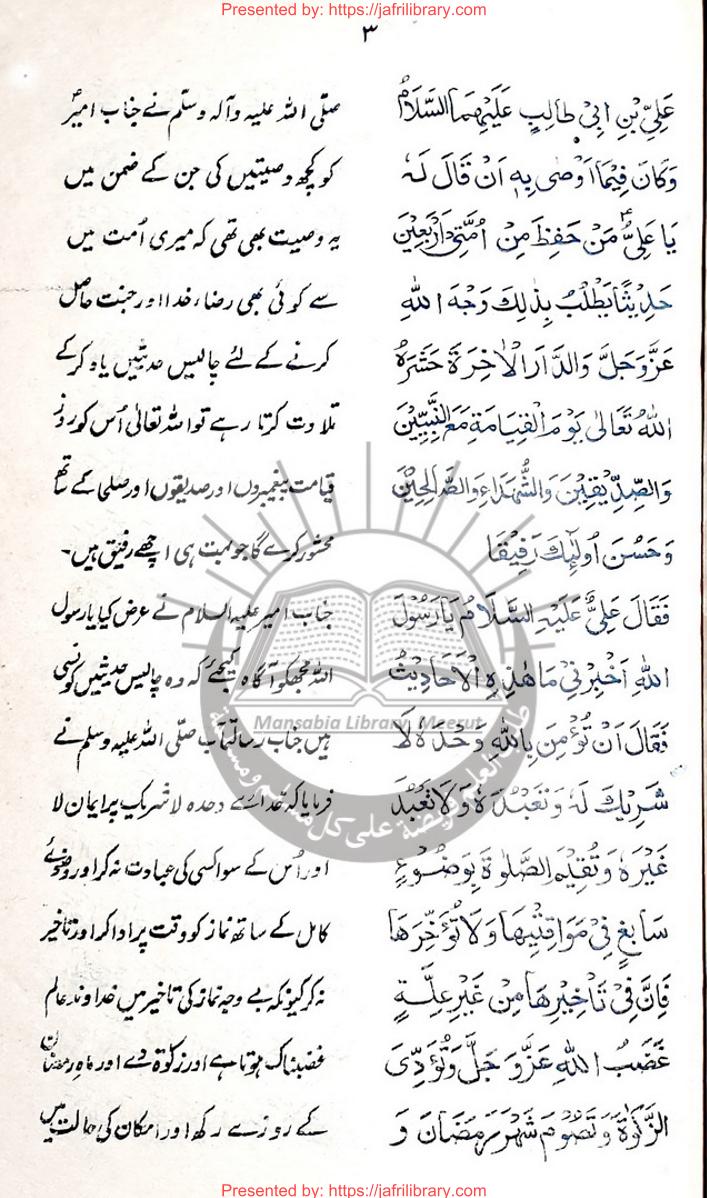 Presented by: https://jafrilibrary.com
٣
عَلِيِّ بْنِ اَبِيْ طَالِبٍ عَلَيْهِمَا السَّلَامُ
وَكَانَ فِيْمَا اَوْصٰى بِهٖ اَنْ قَالَ لَهٗ
يَا عَلِيُّ مَنْ حَفِظَ مِنْ اُمَّتِيْ اَرْبَعِيْنَ
حَدِيْثًا يَطْلُبُ بِذٰلِكَ وَجْهَ اللهِ
عَزَّوَجَلَّ وَالدَّارَ الْاٰخِرَةَ حَشَرَهُ
اللهُ تَعَالٰى يَوْمَ الْقِيَامَةِ مَعَ النَّبِيِّيْنَ
وَالصِّدِّيْقِيْنَ وَالشُّهَدَاءِ وَالصَّالِحِيْنَ
وَحَسُنَ اُولٰٓئِكَ رَفِيْقًا
فَقَالَ عَلِيٌّ عَلَيْهِ السَّلَامُ يَا رَسُوْلَ
اللهِ اَخْبِرْنِيْ مَا هٰذِهِ الْاَحَادِيْثُ
فَقَالَ اَنْ تُؤْمِنَ بِاللهِ وَحْدَهٗ لَا
شَرِيْكَ لَهٗ وَتَعْبُدَهٗ وَلَا تَعْبُدَ
غَيْرَهٗ وَتُقِيْمَ الصَّلٰوةَ بِوُضُوْءٍ
سَابِغٍ فِيْ مَوَاقِيْتِهَا وَلَا تُؤَخِّرَهَا
فَاِنَّ فِيْ تَاخِيْرِهَا مِنْ غَيْرِ عِلَّةٍ
غَضَبُ اللهِ عَزَّوَجَلَّ وَتُؤَدِّيَ
الزَّكٰوةَ وَتَصُوْمَ شَهْرَ رَمَضَانَ وَ
صلّی اللہ علیہ وآلہ وسلّم نے جناب امیرؑ
کو کچھ وصیتیں کی جن کے ضمن میں
یہ وصیت بھی تھی کہ میری اُمت میں
سے کوئی بھی رضاء خدا اور جنت حاصل
کرنے کے لئے چالیس حدیثیں یاد کرکے
تلاوت کرتا رہے تو اللہ تعالیٰ اُس کو روز
قیامت پیغمبروں اور صدیقوں اور صلحا کے ساتھ
محشور کرے گا جو بہت ہی اچھے رفیق ہیں۔
جناب امیر علیہ السلام نے عرض کیا یا رسول
اللہ مجھکو آگاہ کیجئے کہ وہ چالیس حدیثیں کونسی
ہیں جناب رسالتمآب صلّی اللہ علیہ وسلم نے
فرمایا کہ خدائے وحدہ لا شریک پر ایمان لا
اور اُس کے سوا کسی کی عبادت نہ کر اور وضوئے
کامل کے ساتھ نماز کو وقت پر ادا کر اور تاخیر
نہ کر کیونکہ بے وجہ نماز کی تاخیر میں خداوند عالم
غضبناک ہوتا ہے اور زکوٰة دے اور ماہ رمضان
کے روزے رکھ اور امکان کی حالت میں
Mansabia Library, Meerut
طلب العلم فريضة على كل مسلم ومسلمة
Presented by: https://jafrilibrary.com